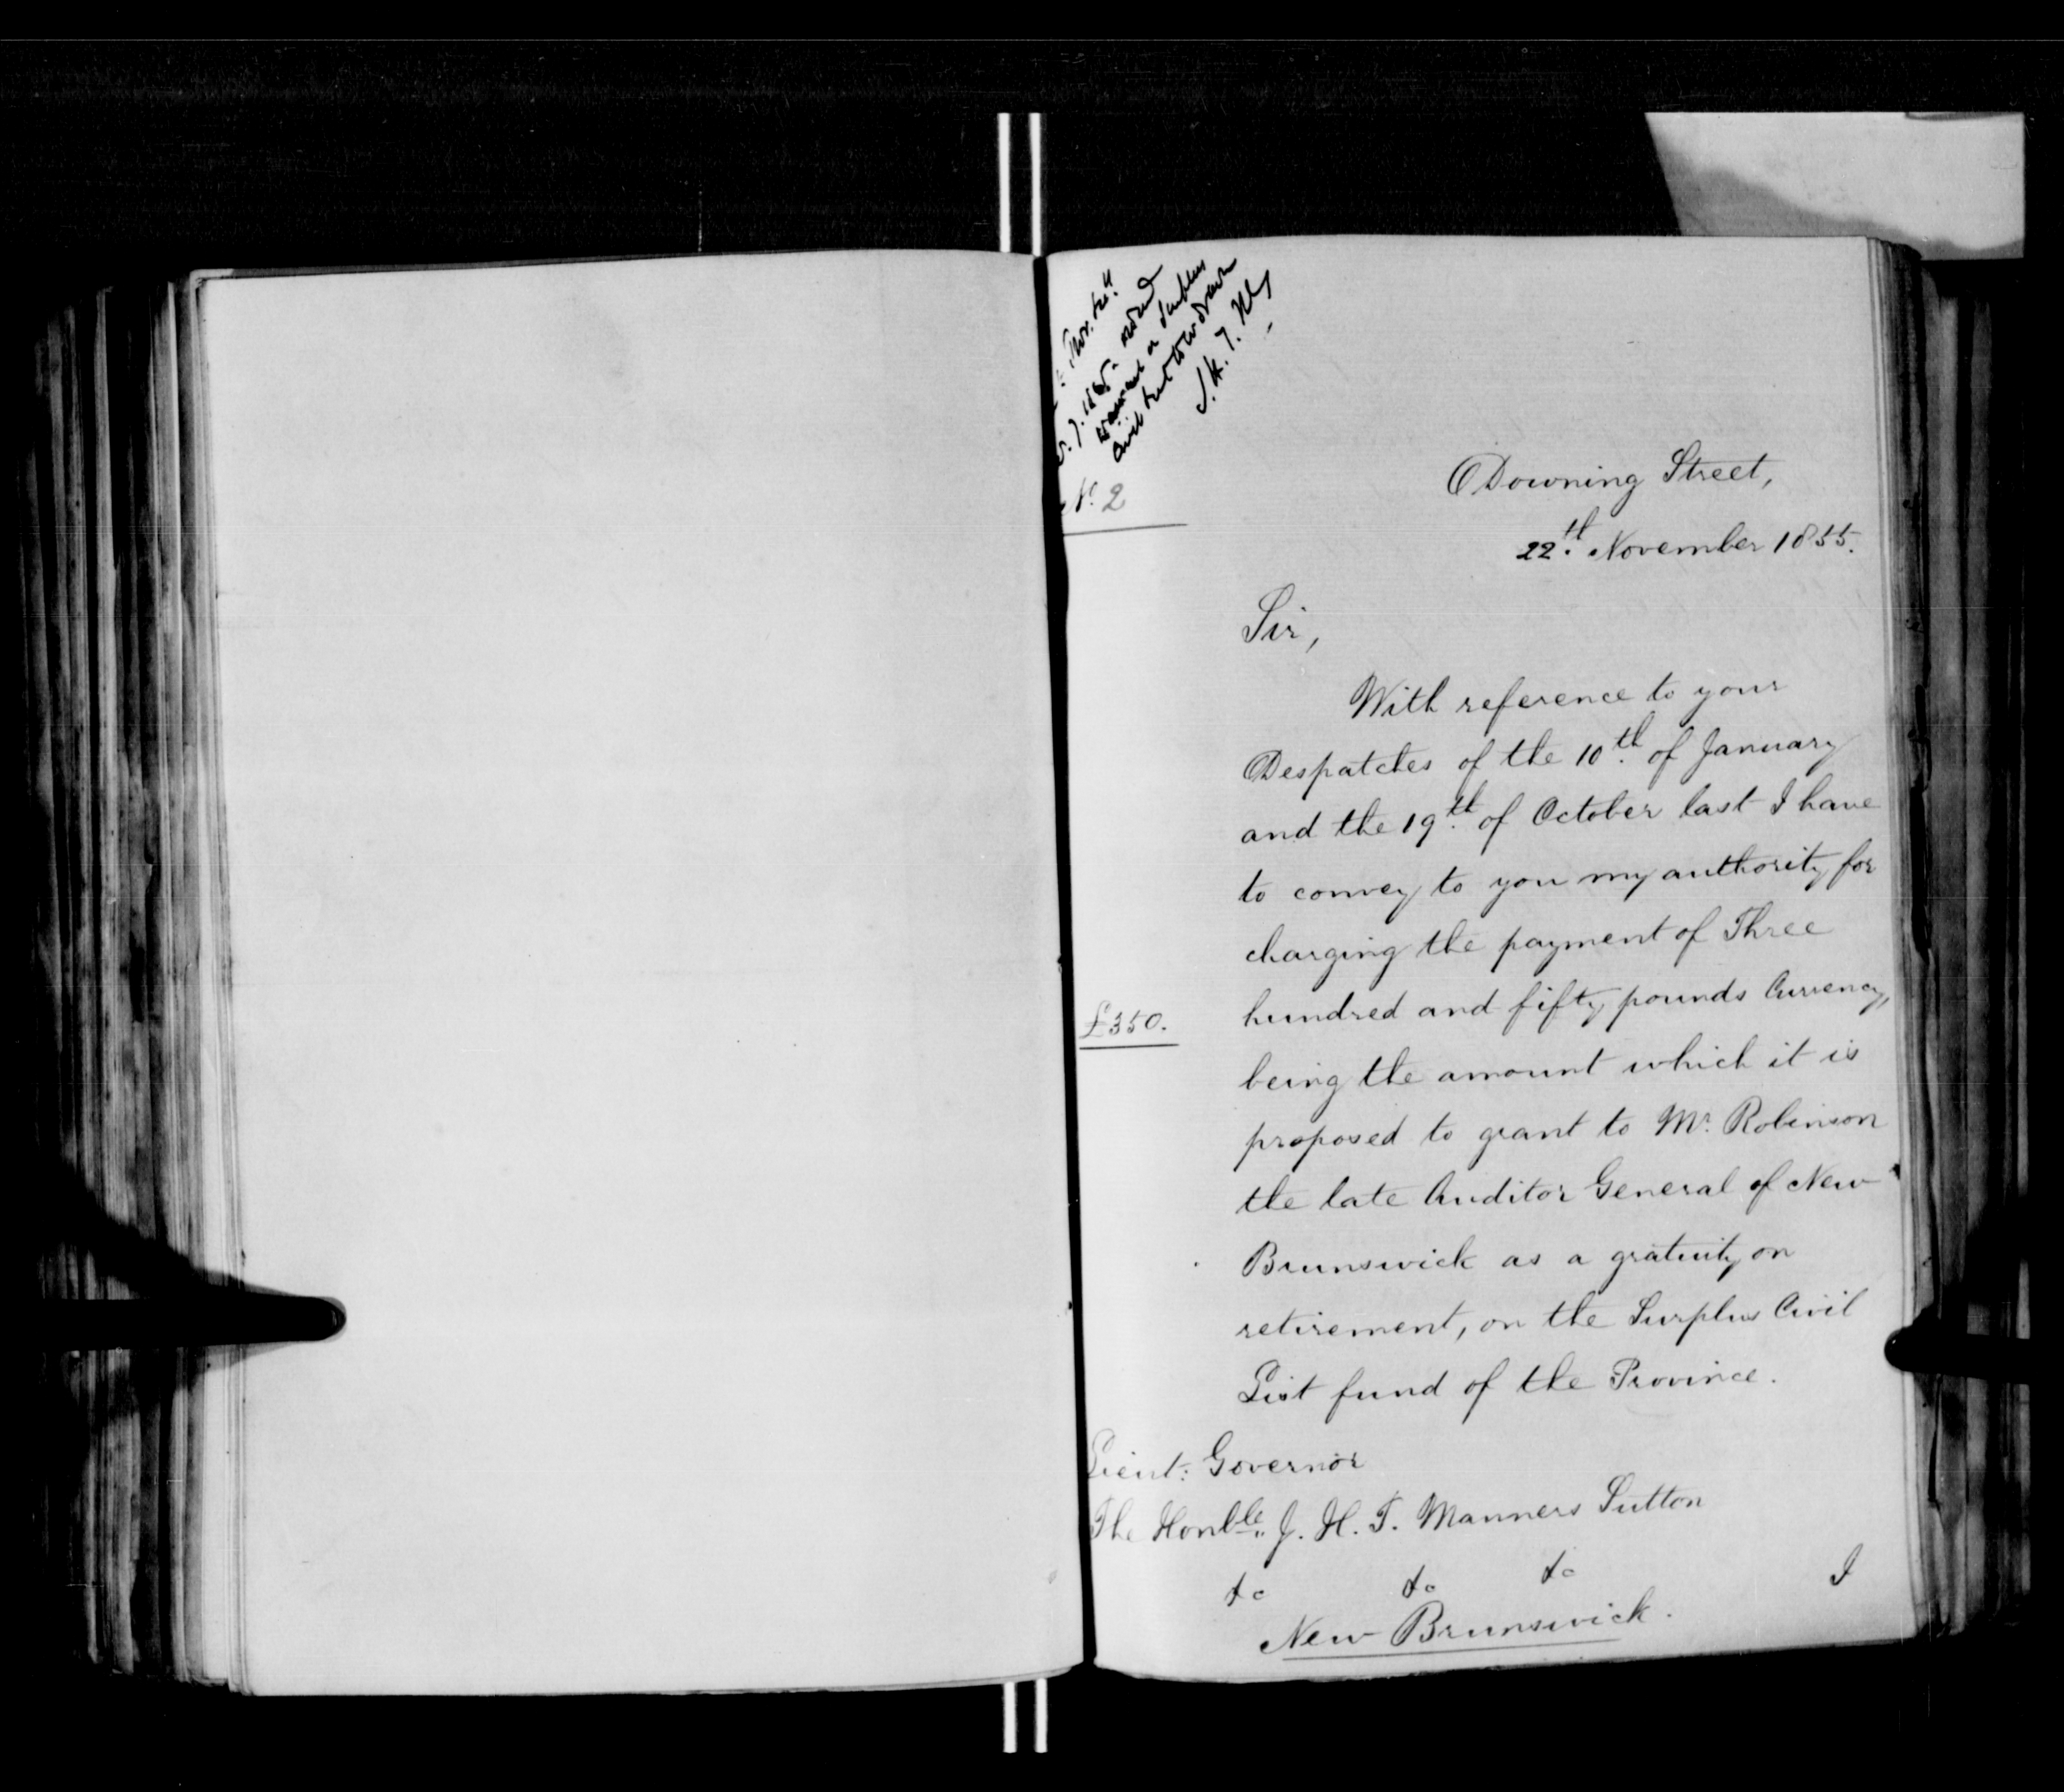 Nº 2
Downing Street,
22th November 1855.
Sir,
With reference to your
Despatches of the 10th of January
and the 19th of October last I have
to convey to you my authority for
charging the payment of Three
£350.
hundred and fifty pounds Currency,
being the amount which it is
proposed to grant to Mr. Robinson
the late Auditor General of New
Brunswick as a gratuity on
retirement, on the Surplus Civil
List fund of the Province.
Lieut: Governor
The Honble. J. H. T. Manners Sutton
&c &c &c
I
New Brunswick.